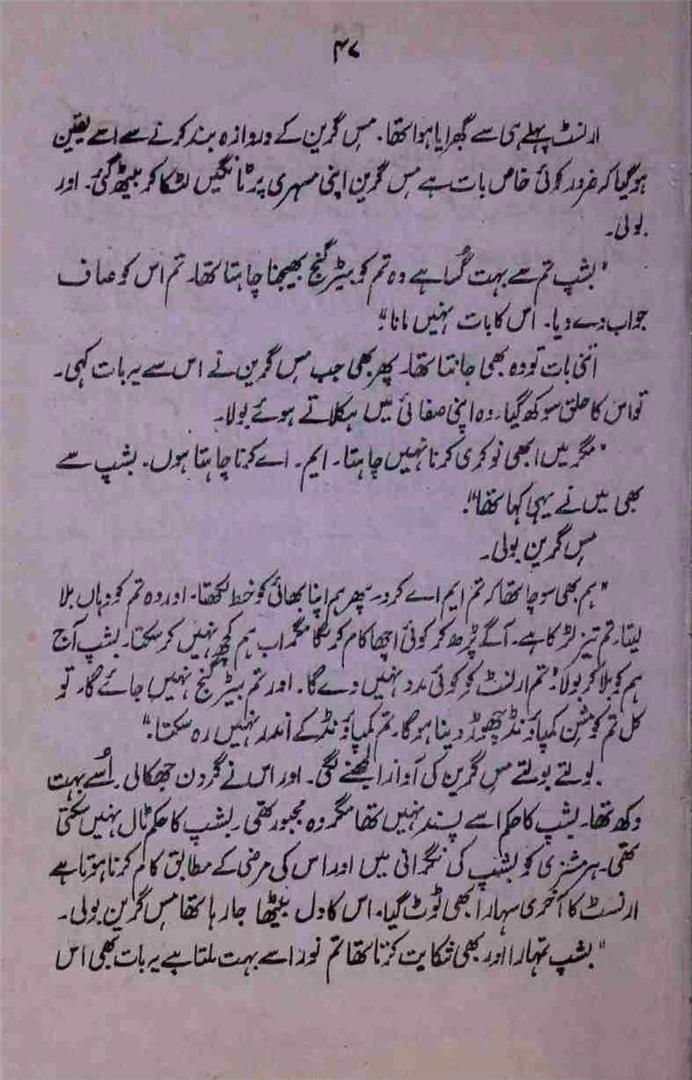 ۴۷
ارنسٹ پہلے ہی سے گھبرایا ہوا تھا۔ مس گرین کے دروازہ بند کرنے سے اسے یقین
ہو گیا کہ ضرور کوئی خاص بات ہے مس گرین اپنی مسہری پر ٹانگیں لٹکا کر بیٹھ گئی۔ اور
بولی۔
"بشپ تم سے بہت گسا ہے وہ تم کو بیٹر گنج بھیجنا چاہتا تھا۔ تم اس کو صاف
جواب دے دیا۔ اس کا بات نہیں مانا"
اتنی بات تو وہ بھی جانتا تھا۔ پھر بھی جب مس گرین نے اس سے یہ بات کہی۔
تو اس کا حلق سوکھ گیا۔ وہ اپنی صفائی میں ہکلاتے ہوئے بولا۔
"مگر میں ابھی نوکری کرنا نہیں چاہتا۔ ایم۔ اے کرنا چاہتا ہوں۔ بشپ سے
بھی میں نے یہی کہا تھا"۔
مس گرین بولی۔
"ہم بھی سوچا تھا کہ تم ایم اے کرو۔ پھر ہم اپنا بھائی کو خط لکھتا۔ اور وہ تم کو وہاں بلا
لیتا۔ تم تیز لڑکا ہے۔ آگے پڑھ کر کوئی اچھا کام کرے گا مگر اب ہم کچھ نہیں کر سکتا۔ بشپ آج
ہم کو بلا کر بولا" تم ارنسٹ کو کوئی مدد نہیں دے گا۔ اور تم بیٹر گنج نہیں جائے گا۔ تو
کل تم کو مشن کمپاؤنڈ چھوڑ دینا ہو گا۔ تم کمپاؤنڈ کے اندر نہیں رہ سکتا۔"
بولتے بولتے مس گرین کی آواز الجھنے لگی۔ اور اس نے گردن جھکا لی۔ اُسے بہت
دکھ تھا۔ بشپ کا حکم اسے پسند نہیں تھا مگر وہ مجبور تھی۔ بشپ کا حکم ٹال نہیں سکتی
تھی۔ ہر مشنری کو بشپ کی نگرانی میں اور اس کی مرضی کے مطابق کام کرنا ہوتا ہے
ارنسٹ کا آخری سہارا بھی ٹوٹ گیا۔ اس کا دل بیٹھا جا رہا تھا مس گرین بولی۔
"بشپ تمہارا اور بھی شکایت کرتا تھا تم نورا سے بہت ملتا ہے یہ بات بھی اس